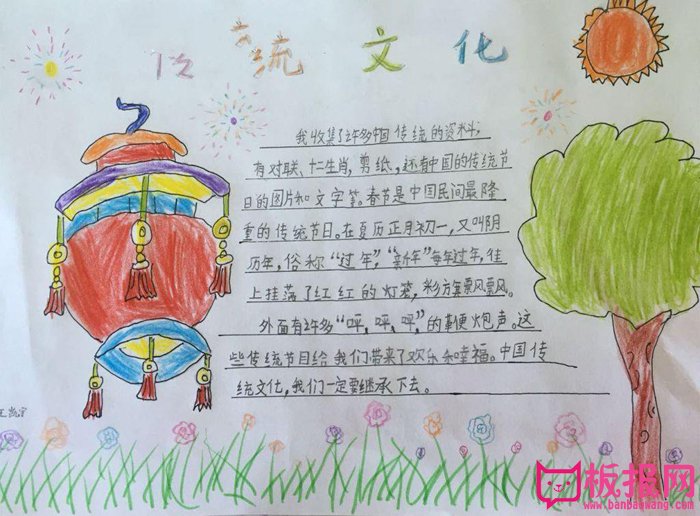 传统文化
我收集了许多中国传统的资料,
有对联、十二生肖,剪纸,还有中国的传统节
日的图片和文字等。春节是中国民间最隆
重的传统节日。在夏历正月初一,又叫阴
历年,俗称“过年”,“新年”每年过年,街
上挂落了红红的灯笼,彩旗飘飘。
外面有许多“呯,呯,呯”的鞭炮声。这
些传统节目给我们带来了欢乐和幸福。中国传
统文化,我们一定要继承下去。
板报网
www.banbaowang.com